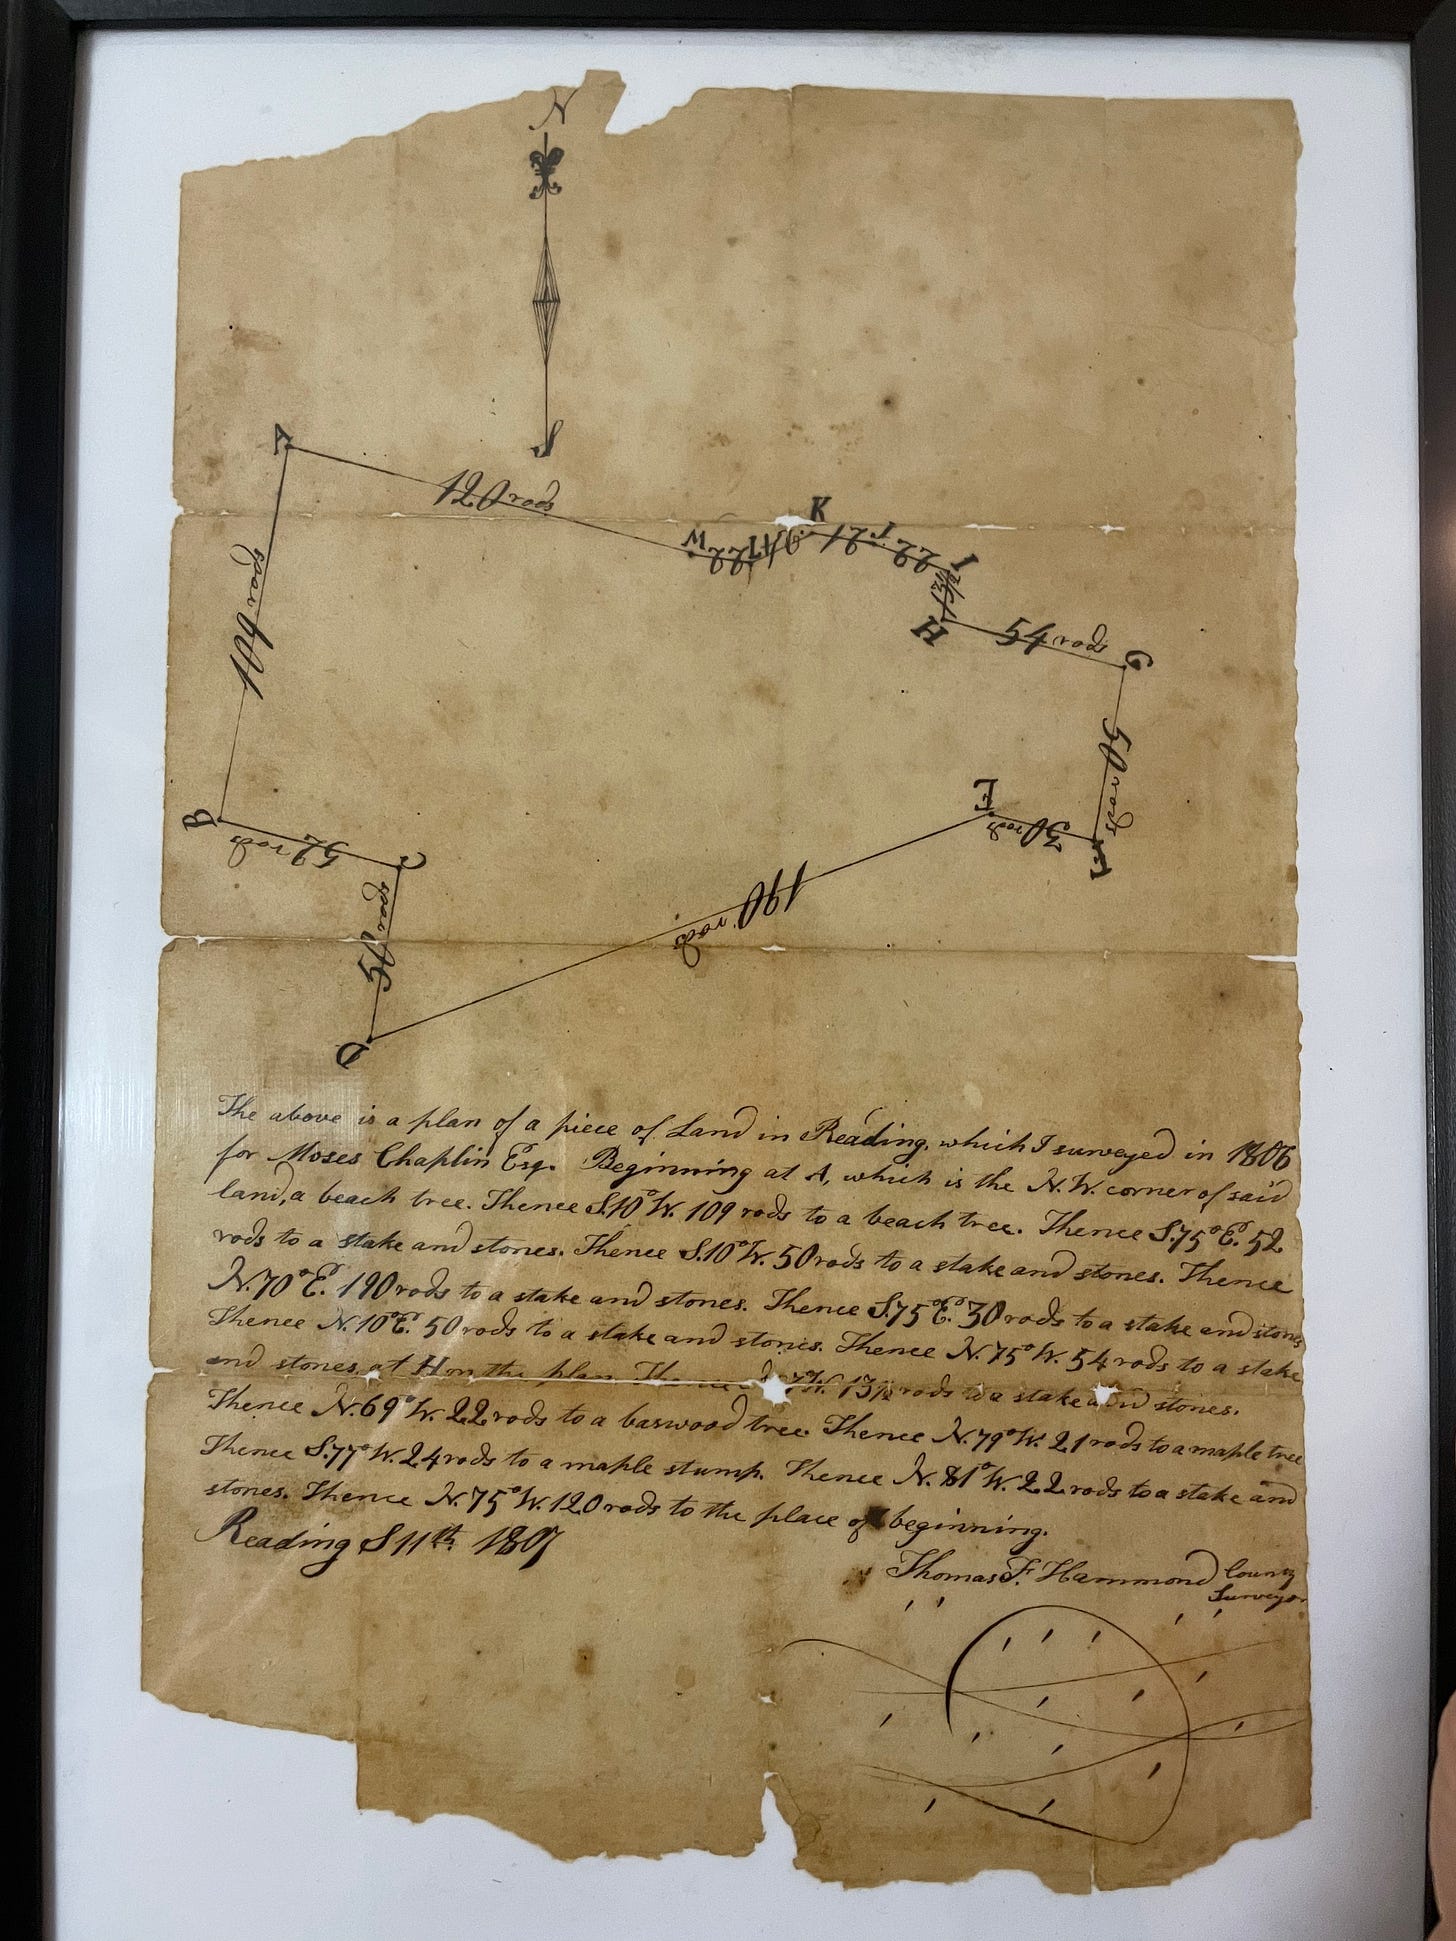 N
S
A
120 rods
K
M 22 L 24
21
22
I
13½
H
54 rods
G
109 rods
50 rods
E
30 rods
F
B
52 rods
C
50 rods
190 rods
D
The above is a plan of a piece of Land in Reading, which I surveyed in 1806
for Moses Chaplin Esqr. Beginning at A, which is the N.W. corner of said
land, a beach tree. Thence S.10°W. 109 rods to a beach tree. Thence S.75°E. 52
rods to a stake and stones. Thence S.10°W. 50 rods to a stake and stones. Thence
N.70°E. 190 rods to a stake and stones. Thence S.75°E. 30 rods to a stake and stones
Thence N.10°E. 50 rods to a stake and stones. Thence N.75°W. 54 rods to a stake
and stones, at H on the plan. Thence 7°W. 13½ rods to a stake and stones.
Thence N.69°W. 22 rods to a baswood tree. Thence N.79°W. 21 rods to a maple tree
Thence S.77°W. 24 rods to a maple stump. Thence N.81°W. 22 rods to a stake and
stones. Thence N.75°W. 120 rods to the place of beginning.
Reading S 11th 1807
Thomas F. Hammond County
Surveyor